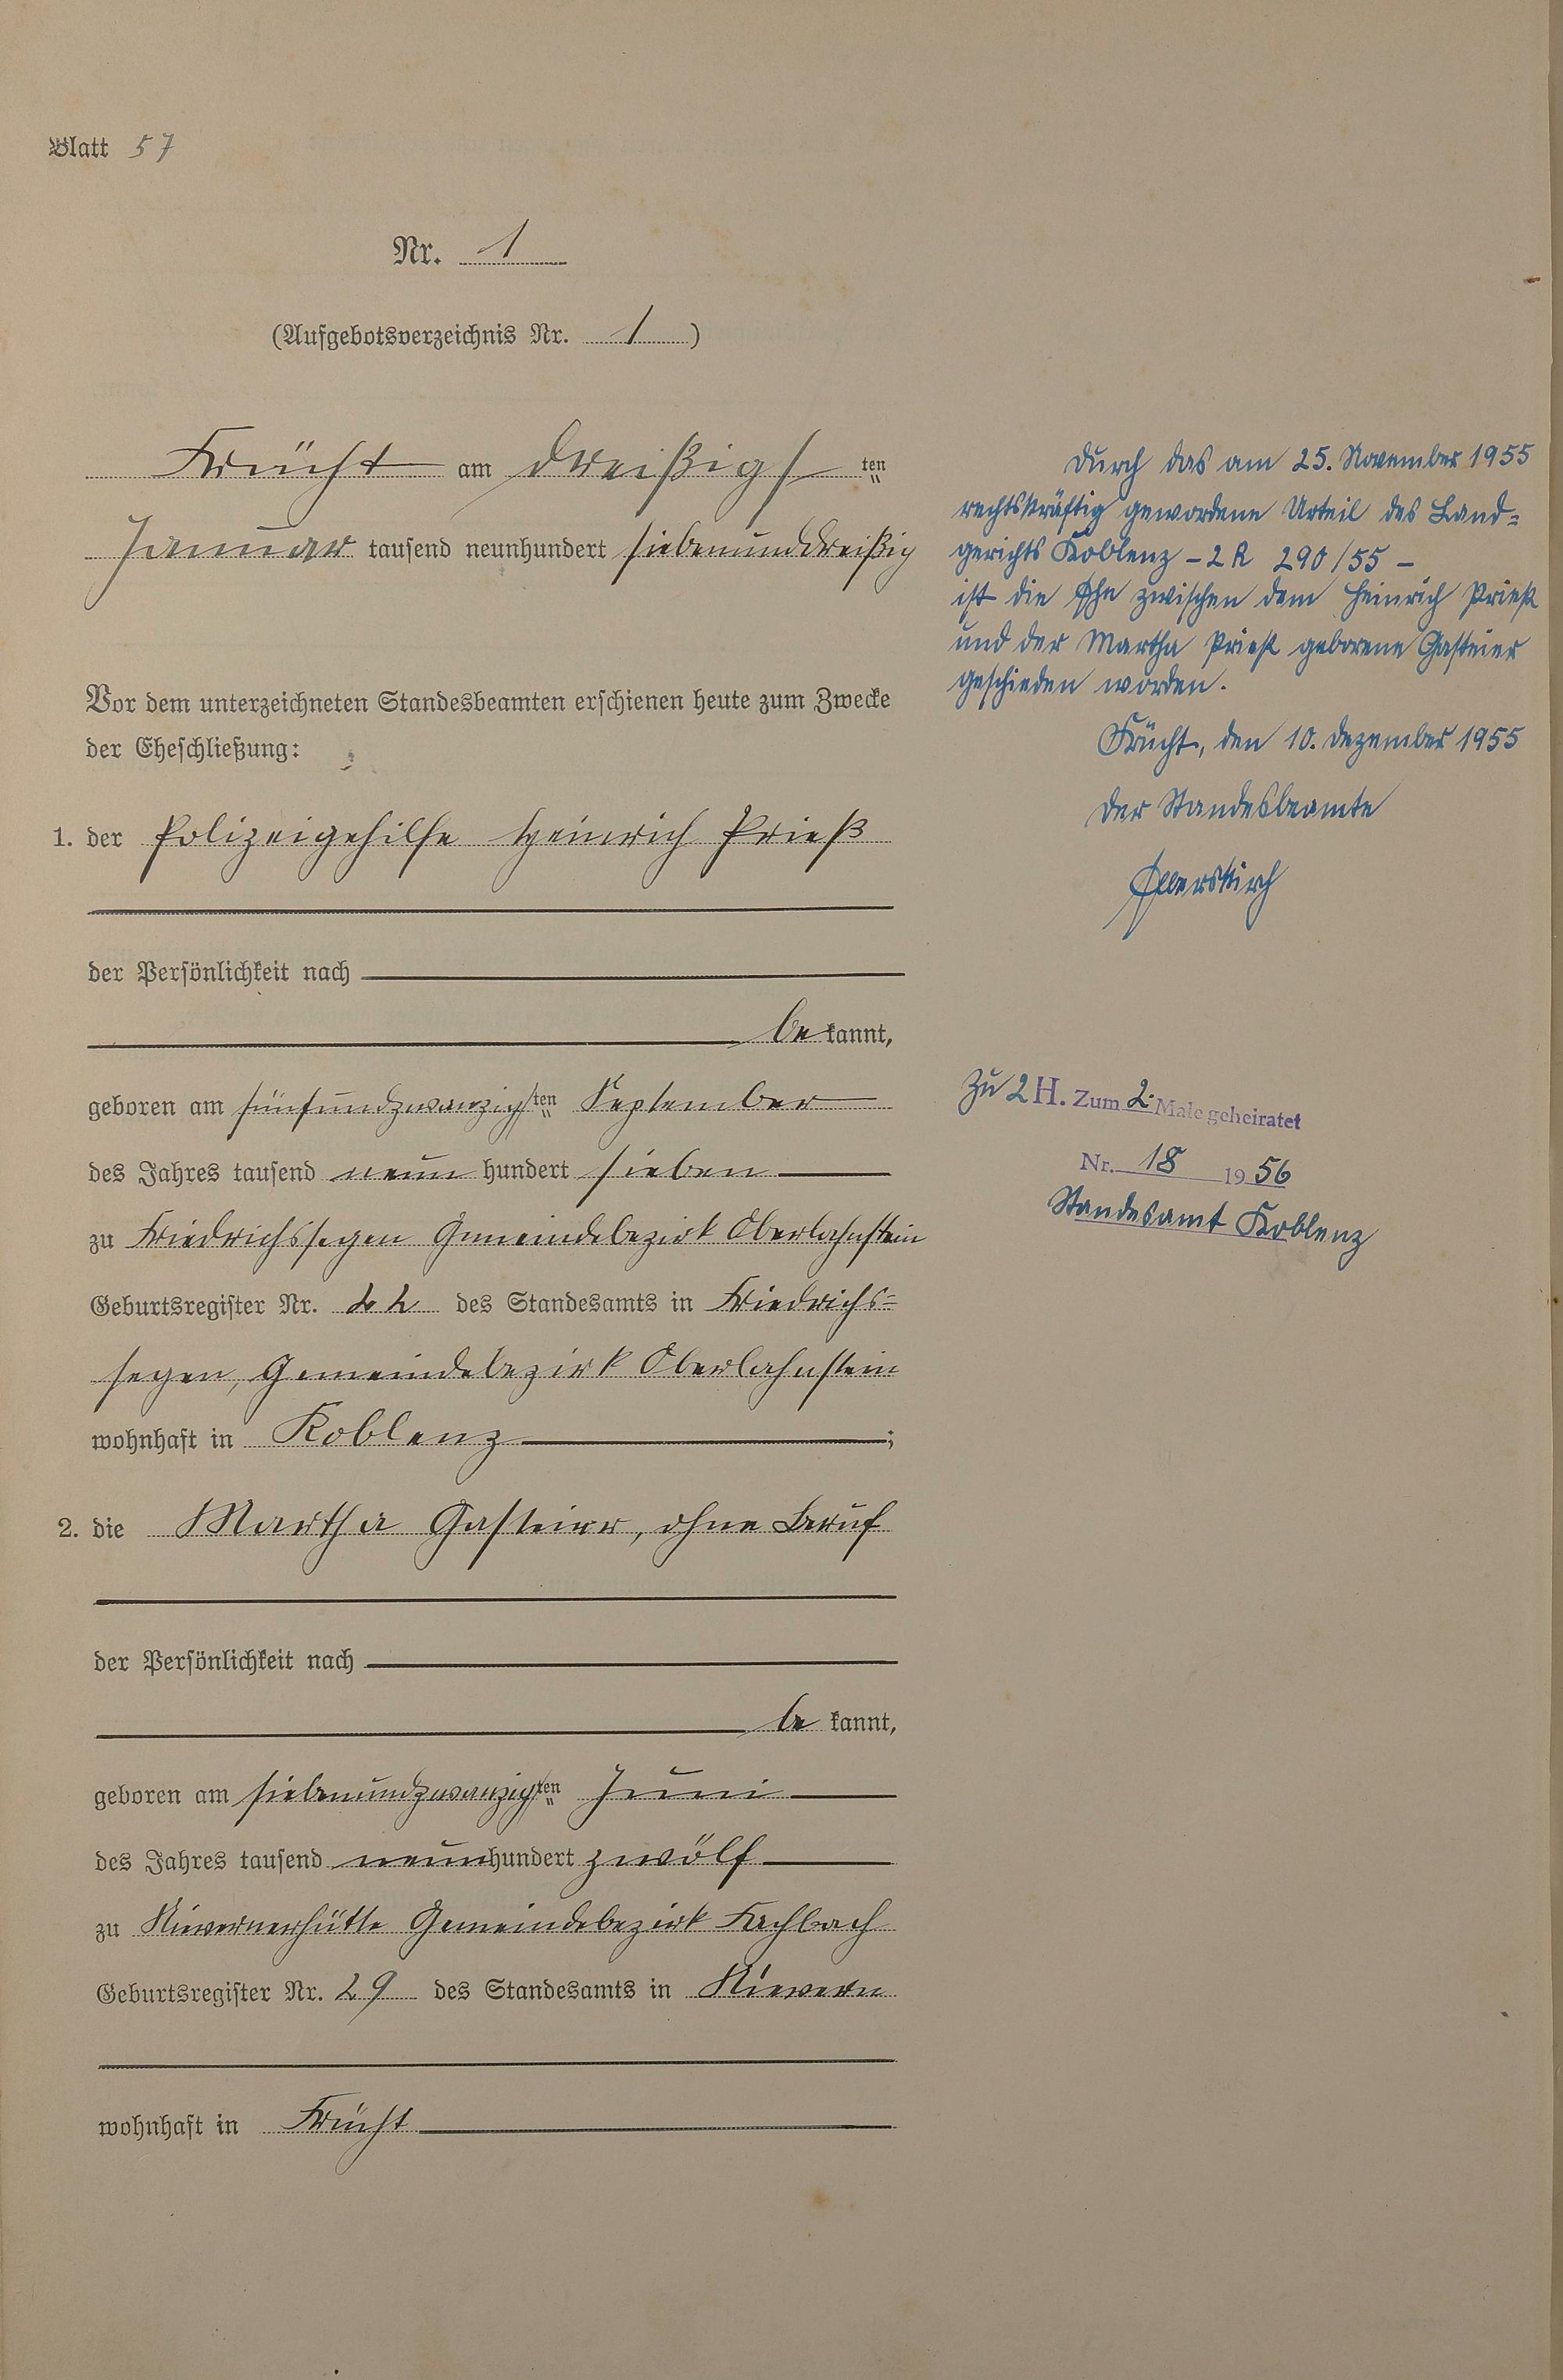 Blatt 57
Nr. 1
(Aufgebotsverzeichnis Nr. 1)
Frücht am dreißigsten
Januar tausend neunhundert siebenunddreißig
Vor dem unterzeichneten Standesbeamten erschienen heute zum Zwecke
der Eheschließung:
1. der Polizeigehilfe Heinrich Prieß
der Persönlichkeit nach
bekannt,
geboren am fünfundzwanzigsten September
des Jahres tausend neunhundert sieben
zu Friedrichssegen Gemeindebezirk Oberlahnstein
Geburtsregister Nr. des Standesamts in Friedrichs=
segen, Gemeindebezirk Oberlahnstein
wohnhaft in Koblenz;
2. die Martha Gasteier, ohne Beruf
der Persönlichkeit nach
bekannt,
geboren am siebenundzwanzigsten Juni
des Jahres tausend neunhundert zwölf
zu Nievernerhütte Gemeindebezirk Fachbach
Geburtsregister Nr. 29 des Standesamts in Nievern
wohnhaft in Frücht
Durch das am 25. November 1955
rechtskräftig gewordene Urteil des Land=
gerichts Koblenz – 2 R 290/55 –
ist die Ehe zwischen dem Heinrich Prieß
und der Martha Prieß geborene Gasteier
geschieden worden.
Frücht, den 10. Dezember 1955
Der Standesbeamte
Zu 2 H. Zum 2. Male geheiratet
Nr. 18 1956
Standesamt Koblenz